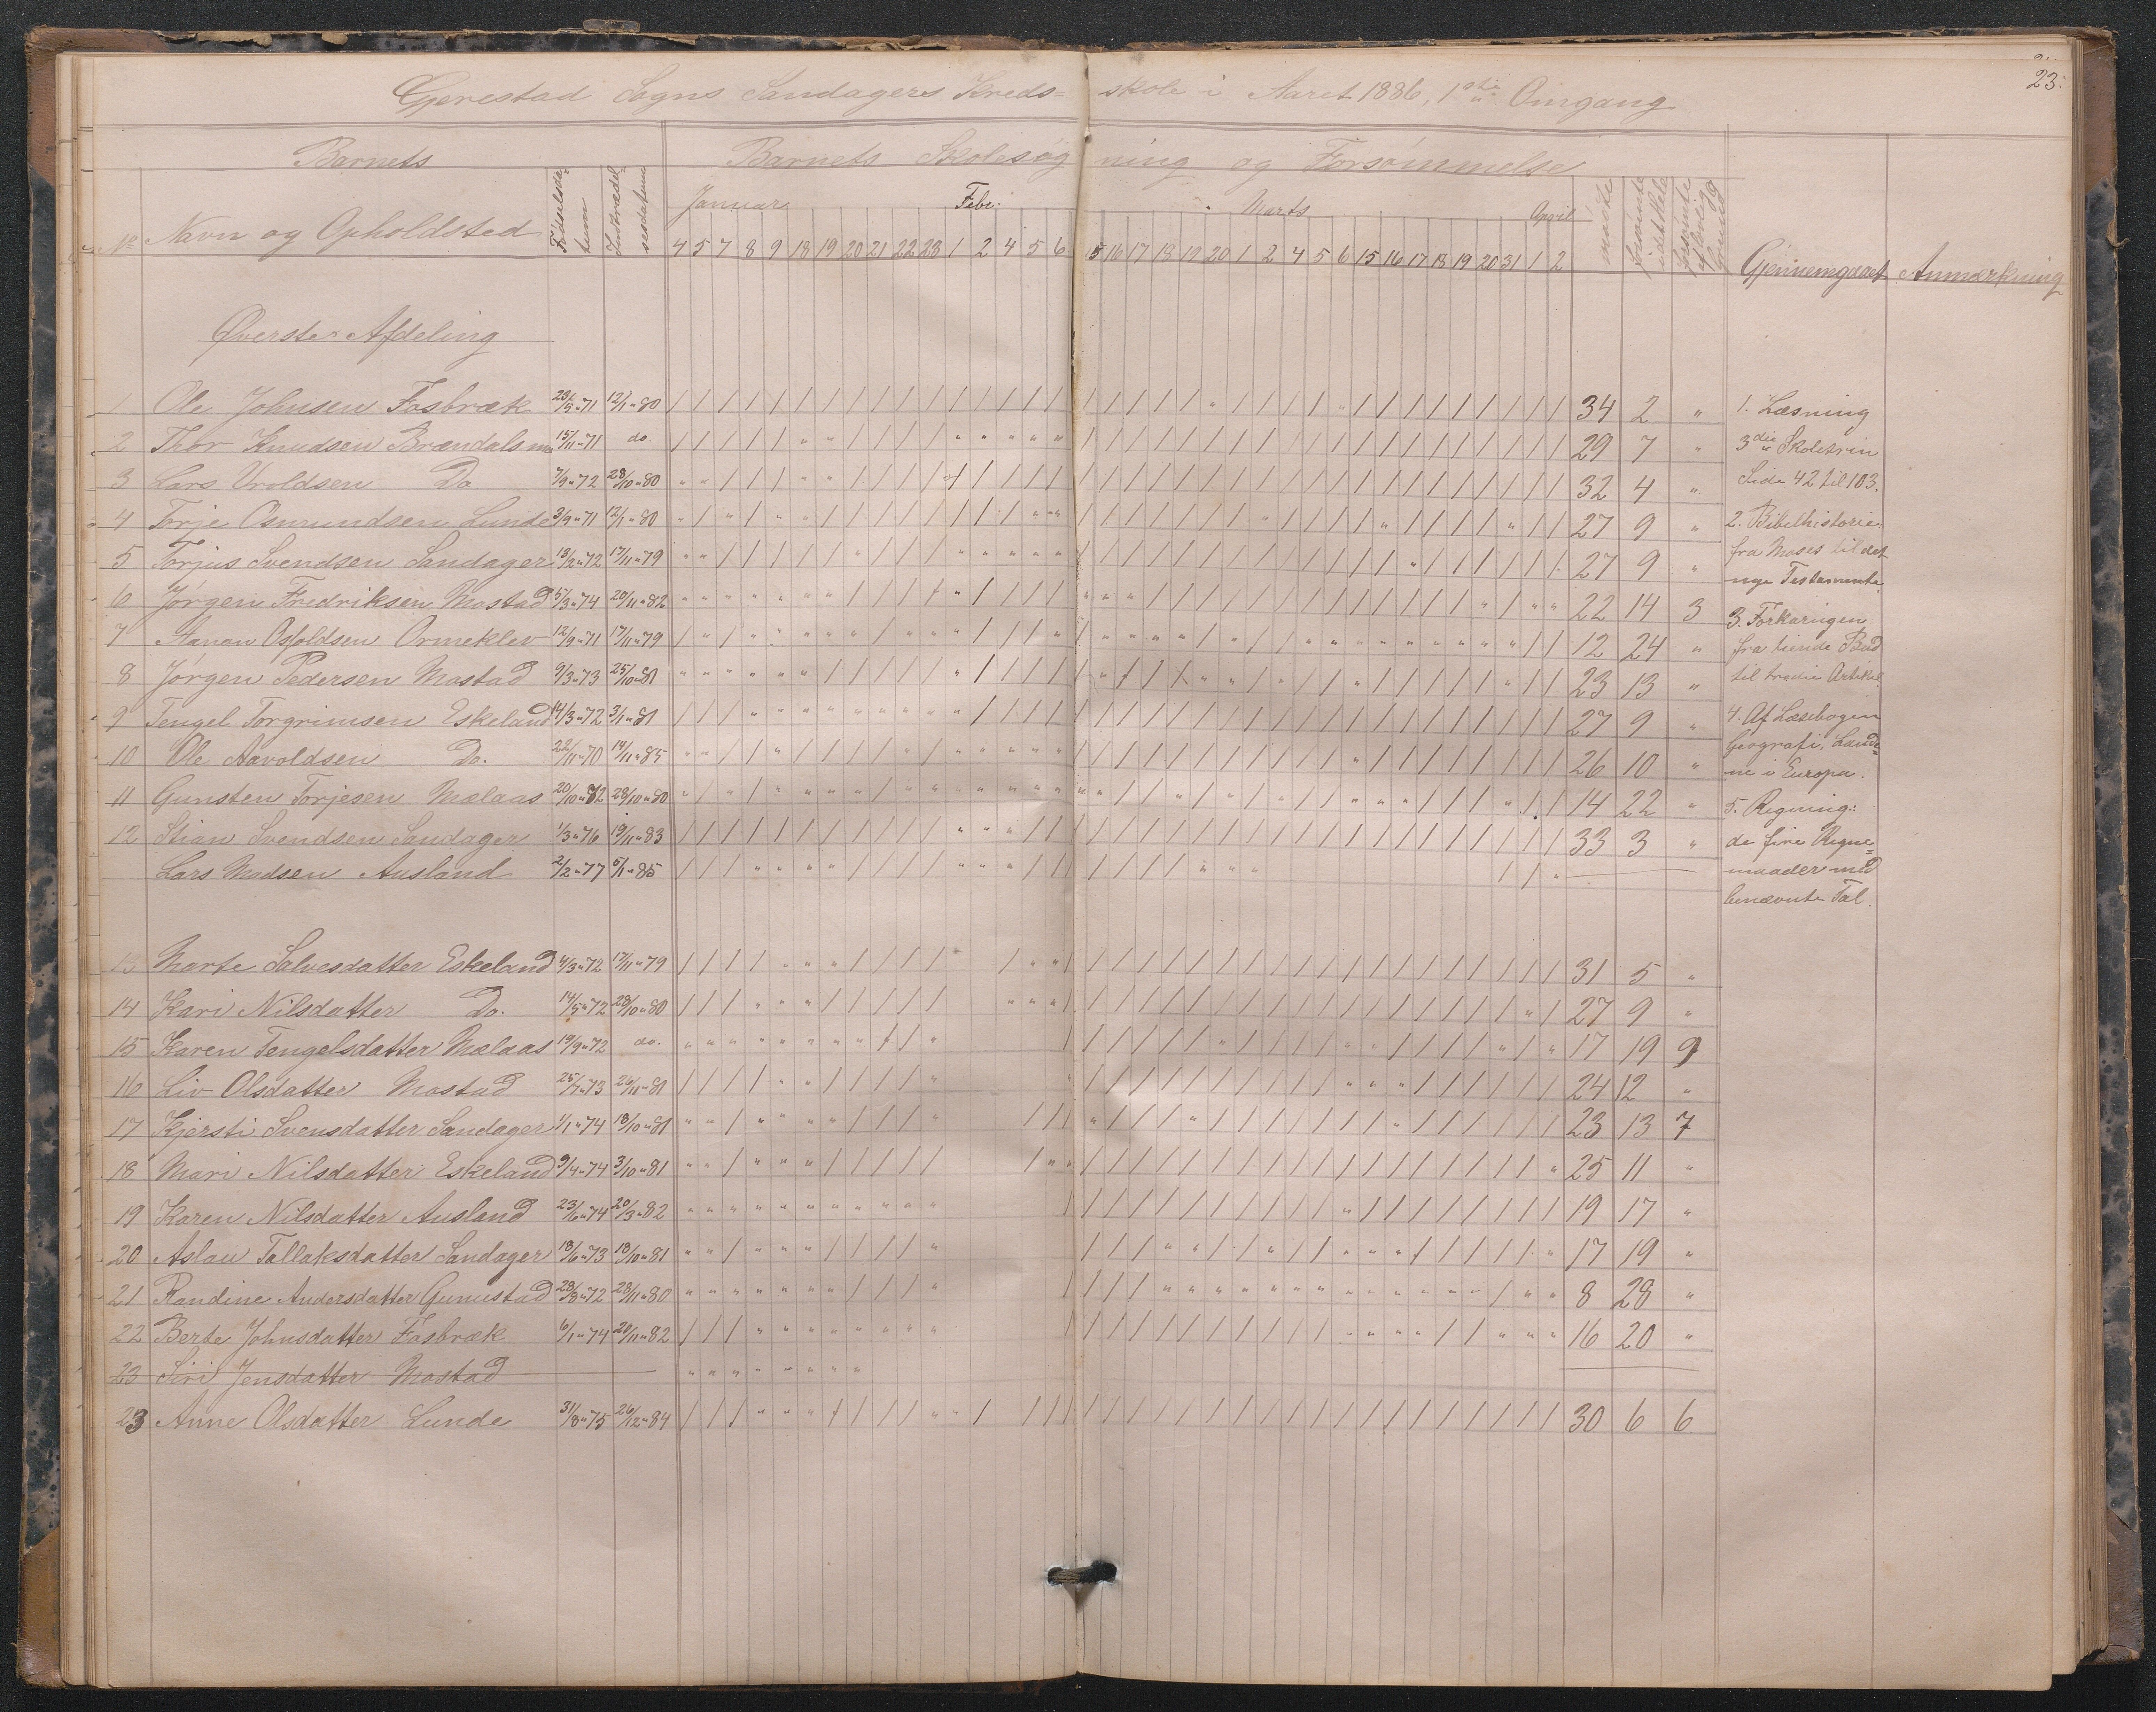 23.
Gjerestad Sogns Sandagers Kreds= skole i Aaret 1886, 1ste Omgang
Barnets Barnets Skolesøgning og Forsømmelse
No Navn og Opholdsted Fødselsdatum Indtrædelsesdatum Januar Febr. Marts April mødte forsømte idethele forsømte af lovlig Grund Gjennemgaaet Anmærkning
4 5 7 8 9 18 19 20 21 22 23 1 2 4 5 6 15 16 17 18 19 20 1 2 4 5 6 15 16 17 18 19 20 31 1 2
Øverste Afdeling
1 Ole Johnsen Fosbræk 23/5 " 71 12/1 " 80 34 2 "
2 Thor Knudsen Brændalsmo 15/11 " 71 do. 29 7 "
3 Lars Vroldsen Do 7/9 " 72 28/10 " 80 32 4 "
4 Torje Osmundsen Lunde 3/9 " 71 12/1 " 80 27 9 "
5 Torjus Svendsen Sandager 18/2 " 72 17/11 " 79 27 9 "
6 Jørgen Fredriksen Mostad 5/3 " 74 20/11 " 82 22 14 3
7 Aanon Osfoldsen Ormeklev 12/9 " 71 17/11 " 79 12 24 "
8 Jørgen Pedersen Mostad 9/3 " 73 25/10 " 81 23 13 "
9 Tengel Torgrimsen Eskeland 14/3 " 72 3/1 " 81 27 9 "
10 Ole Aavoldsen Do. 22/11 " 70 14/11 " 85 26 10 "
11 Gunsten Torjesen Mælaas 20/10 " 72 28/10 " 80 14 22 "
12 Stian Svendsen Sandager 1/3 " 76 19/11 " 83 33 3 "
Lars Madsen Ausland 2/2 " 77 5/1 " 85
13 Marte Salvesdatter Eskeland 4/3 " 72 17/11 " 79 31 5 "
14 Kari Nilsdatter Do. 14/5 " 72 28/10 " 80 27 9 "
15 Karen Tengelsdatter Mælaas 19/9 " 72 do. 17 19 9
16 Liv Olsdatter Mostad 25/7 " 73 26/11 " 81 24 12 "
17 Kjersti Svensdatter Sandager 1/1 " 74 18/10 " 81 23 13 7
18 Mari Nilsdatter Eskeland 9/4 " 74 3/10 " 81 25 11 "
19 Karen Nilsdatter Ausland 23/6 " 74 20/3 " 82 19 17 "
20 Aslau Tallaksdatter Sandager 18/6 " 73 18/10 " 81 17 19 "
21 Randine Andersdatter Gunnestad 28/8 " 72 28/11 " 80 8 28 "
22 Berte Johnsdatter Fosbræk 6/1 " 74 20/11 " 82 16 20 "
23 Siri Jensdatter Mostad
23 Anne Olsdatter Lunde 31/8 " 75 26/12 " 84 30 6 6
1. Læsning
3die Skoletrin
Side 42 til 103.
2. Bibelhistorie.
fra Moses til det
nye Testamente.
3. Forklaringen
fra tiende Bud
til tredie Artikel.
4. Af Læsebogen
Geografi, Lande=
ne i Europa.
5. Regning:
de fire Regne=
maader med
benævnte Tal.